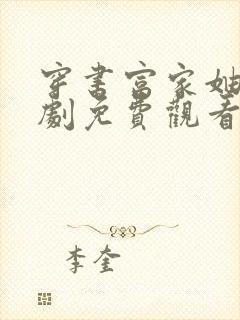 穿书富家妯
劇免費觀看
李奎